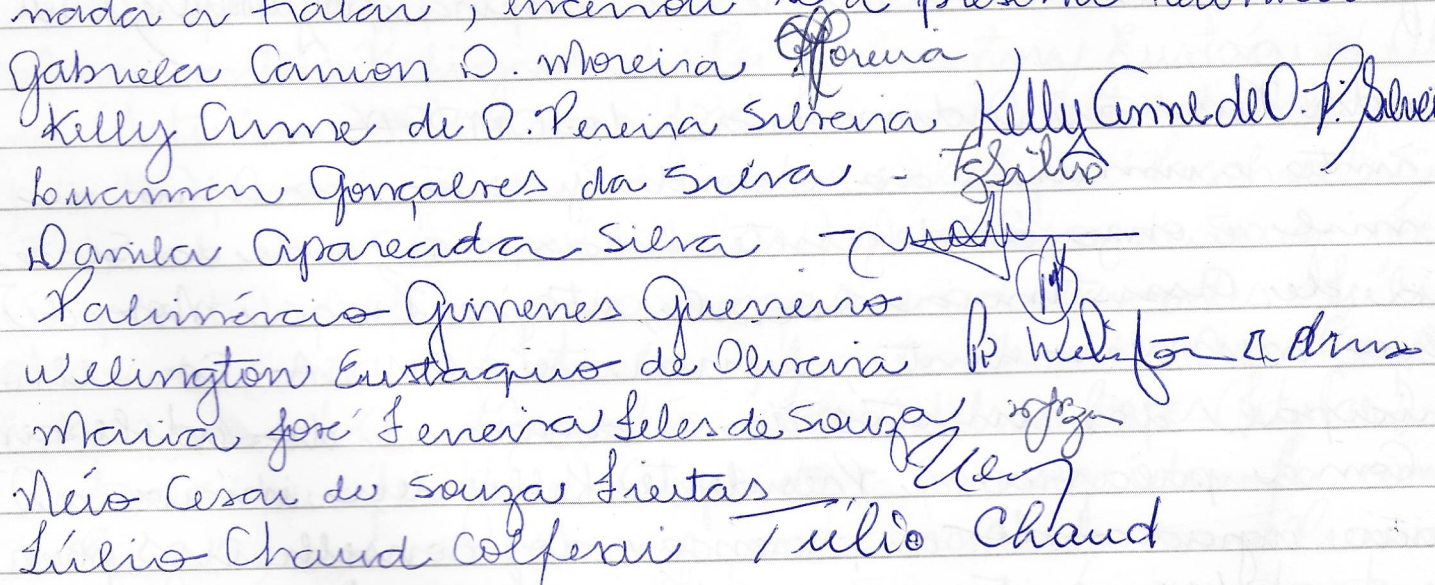 nada a tratar, encerrou se a presente
Gabriela Canion D. Moreira GMoreira
Kelly Anne de O. Pereira Silveira Kelly Anne de O. P. Silvei
Gonçalves da Silva - Silva
Danila Aparecida Silva
Palimércio Gimenes Guerreiro
Welington Eustaquio de Oliveira
Maria José Ferreira Teles de Souza
Neio Cesar de Souza Freitas
Túlio Chaud Colferai Túlio Chaud